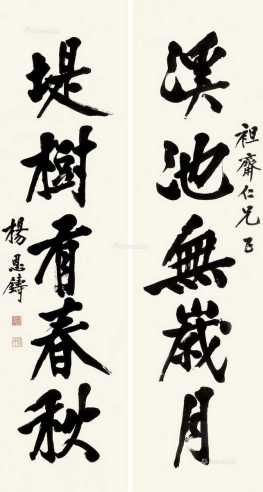 袒齋仁兄正
溪池無歲月
堤樹看春秋
楊恩鑄